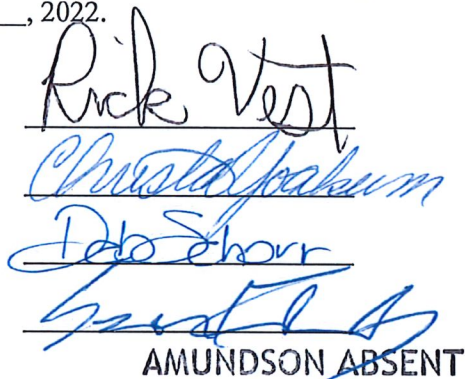 , 2022.
Rick Vest
Christa Yoakum
Deb Schorr
AMUNDSON ABSENT